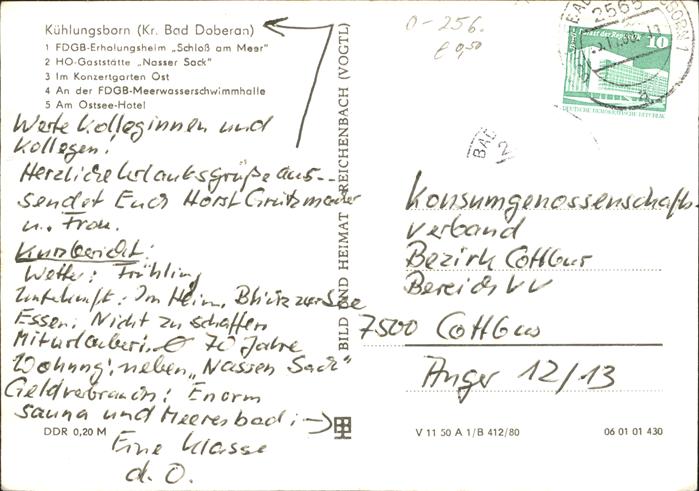 Kühlungsborn (Kr. Bad Doberan)
1 FDGB-Erholungsheim „Schloß am Meer"
2 HO-Gaststätte „Nasser Sack"
3 Im Konzertgarten Ost
4 An der FDGB-Meerwasserschwimmhalle
5 Am Ostsee-Hotel
Werte Kolleginnen und
Kollegen!
Herzliche Urlaubsgrüße aus
sendet Euch Horst Grützmacher
u. Frau.
Kurzbericht:
Wetter: Frühling
Unterkunft: Im Heim, Blick zur See
Essen: Nicht zu schaffen
Miturlauber: Ø 70 Jahre
Wohnung: neben „Nassen Sack"
Geldverbrauch: Enorm
Sauna und Meeresbad:
Eine Klasse
d. O.
DDR 0,20 M
BILD UND HEIMAT REICHENBACH (VOGTL)
O-256.
€ 0,50
2565
10
DEUTSCHE DEMOKRATISCHE REPUBLIK
BAD
Konsumgenossenschafts-
verband
Bezirk Cottbus
Bereich VV
7500 Cottbus
Anger 12/13
V 11 50 A 1/B 412/80
06 01 01 430